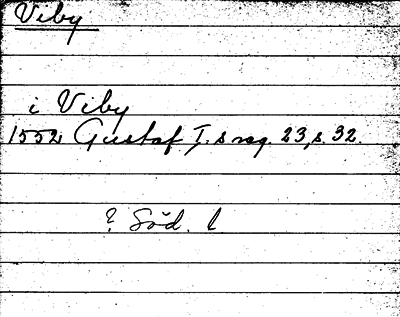 Viby
i Viby
1552 Gustaf I.s reg. 23, s. 32.
? Söd. l